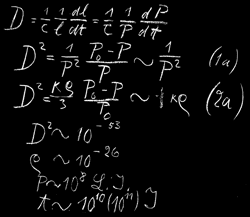 D = 1/c 1/l dl/dt = 1/c 1/P dP/dt
D² = 1/P² (P₀-P)/P ~ 1/P² (1a)
D² = κρ/3 (P₀-P)/P₀ ~ ⅓ κρ (2a)
D² ~ 10⁻⁵³
ρ ~ 10⁻²⁶
P ~ 10⁸ L.J.
t ~ 10¹⁰(10¹¹) J